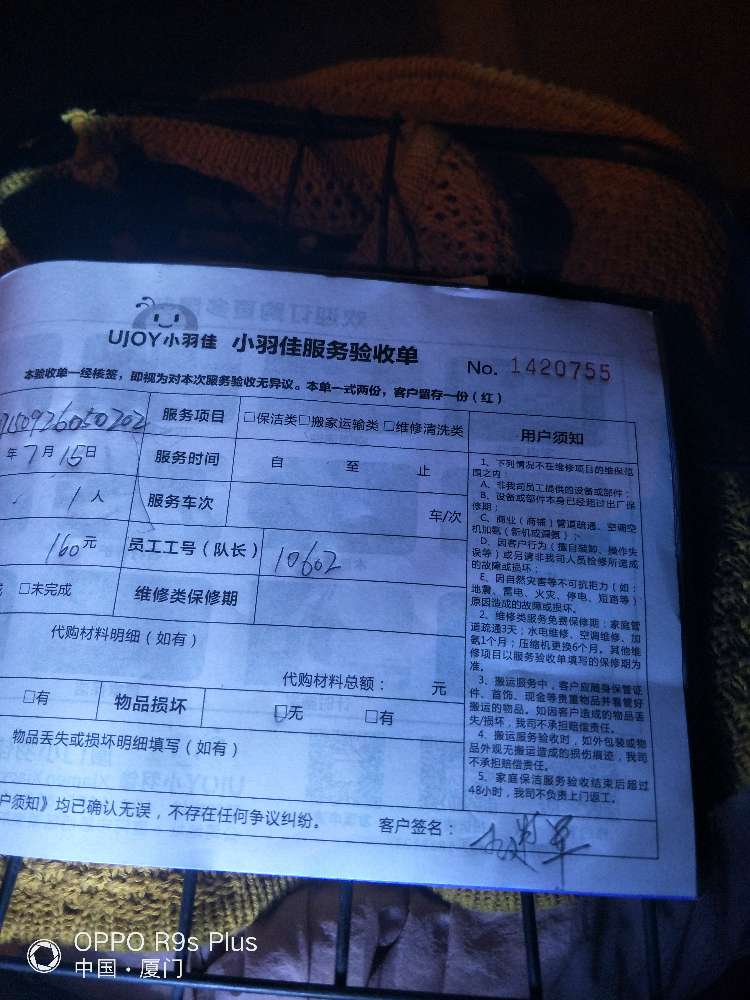 UJOY小羽佳 小羽佳服务验收单 No. 1420755
本验收单一经核签，即视为对本次服务验收无异议。本单一式两份，客户留存一份（红）
服务项目 □保洁类□搬家运输类 □维修清洗类
年7月15日 服务时间 自 至 止
1人 服务车次 车/次
160元 员工工号（队长） 10602
□未完成 维修类保修期
代购材料明细（如有）
代购材料总额： 元
□有 物品损坏 □无 □有
物品丢失或损坏明细填写（如有）
户须知》均已确认无误，不存在任何争议纠纷。 客户签名：
用户须知
1、下列情况不在维修项目的维保范
围之内：
A、非我司员工提供的设备或部件；
B、设备或部件本身已经超过出厂保
修期；
C、商业（商铺）管道疏通、空调空
机加氨（新机或调氨）；
D、因客户行为（擅自装卸、操作失
误等）或另请非我司人员检修所造成
的故障或损坏；
E、因自然灾害等不可抗拒力（如：
地震、蓄电、火灾、停电、短路等）
原因造成的故障或损坏。
2、维修类服务免费保修期：家庭管
道疏通3天；水电维修、空调维修、加
氨1个月；压缩机更换6个月。其他维
修项目以服务验收单填写的保修期为
准。
3、搬运服务中，客户应随身保管证
件、首饰、现金等贵重物品并看管好
搬运的物品。如因客户造成的物品丢
失/损坏，我司不承担赔偿责任。
4、搬运服务验收时，如外包装或物
品外观无搬运造成的损伤痕迹，我司
不承担赔偿责任。
5、家庭保洁服务验收结束后超过
48小时，我司不负责上门返工。
OPPO R9s Plus
中国·厦门